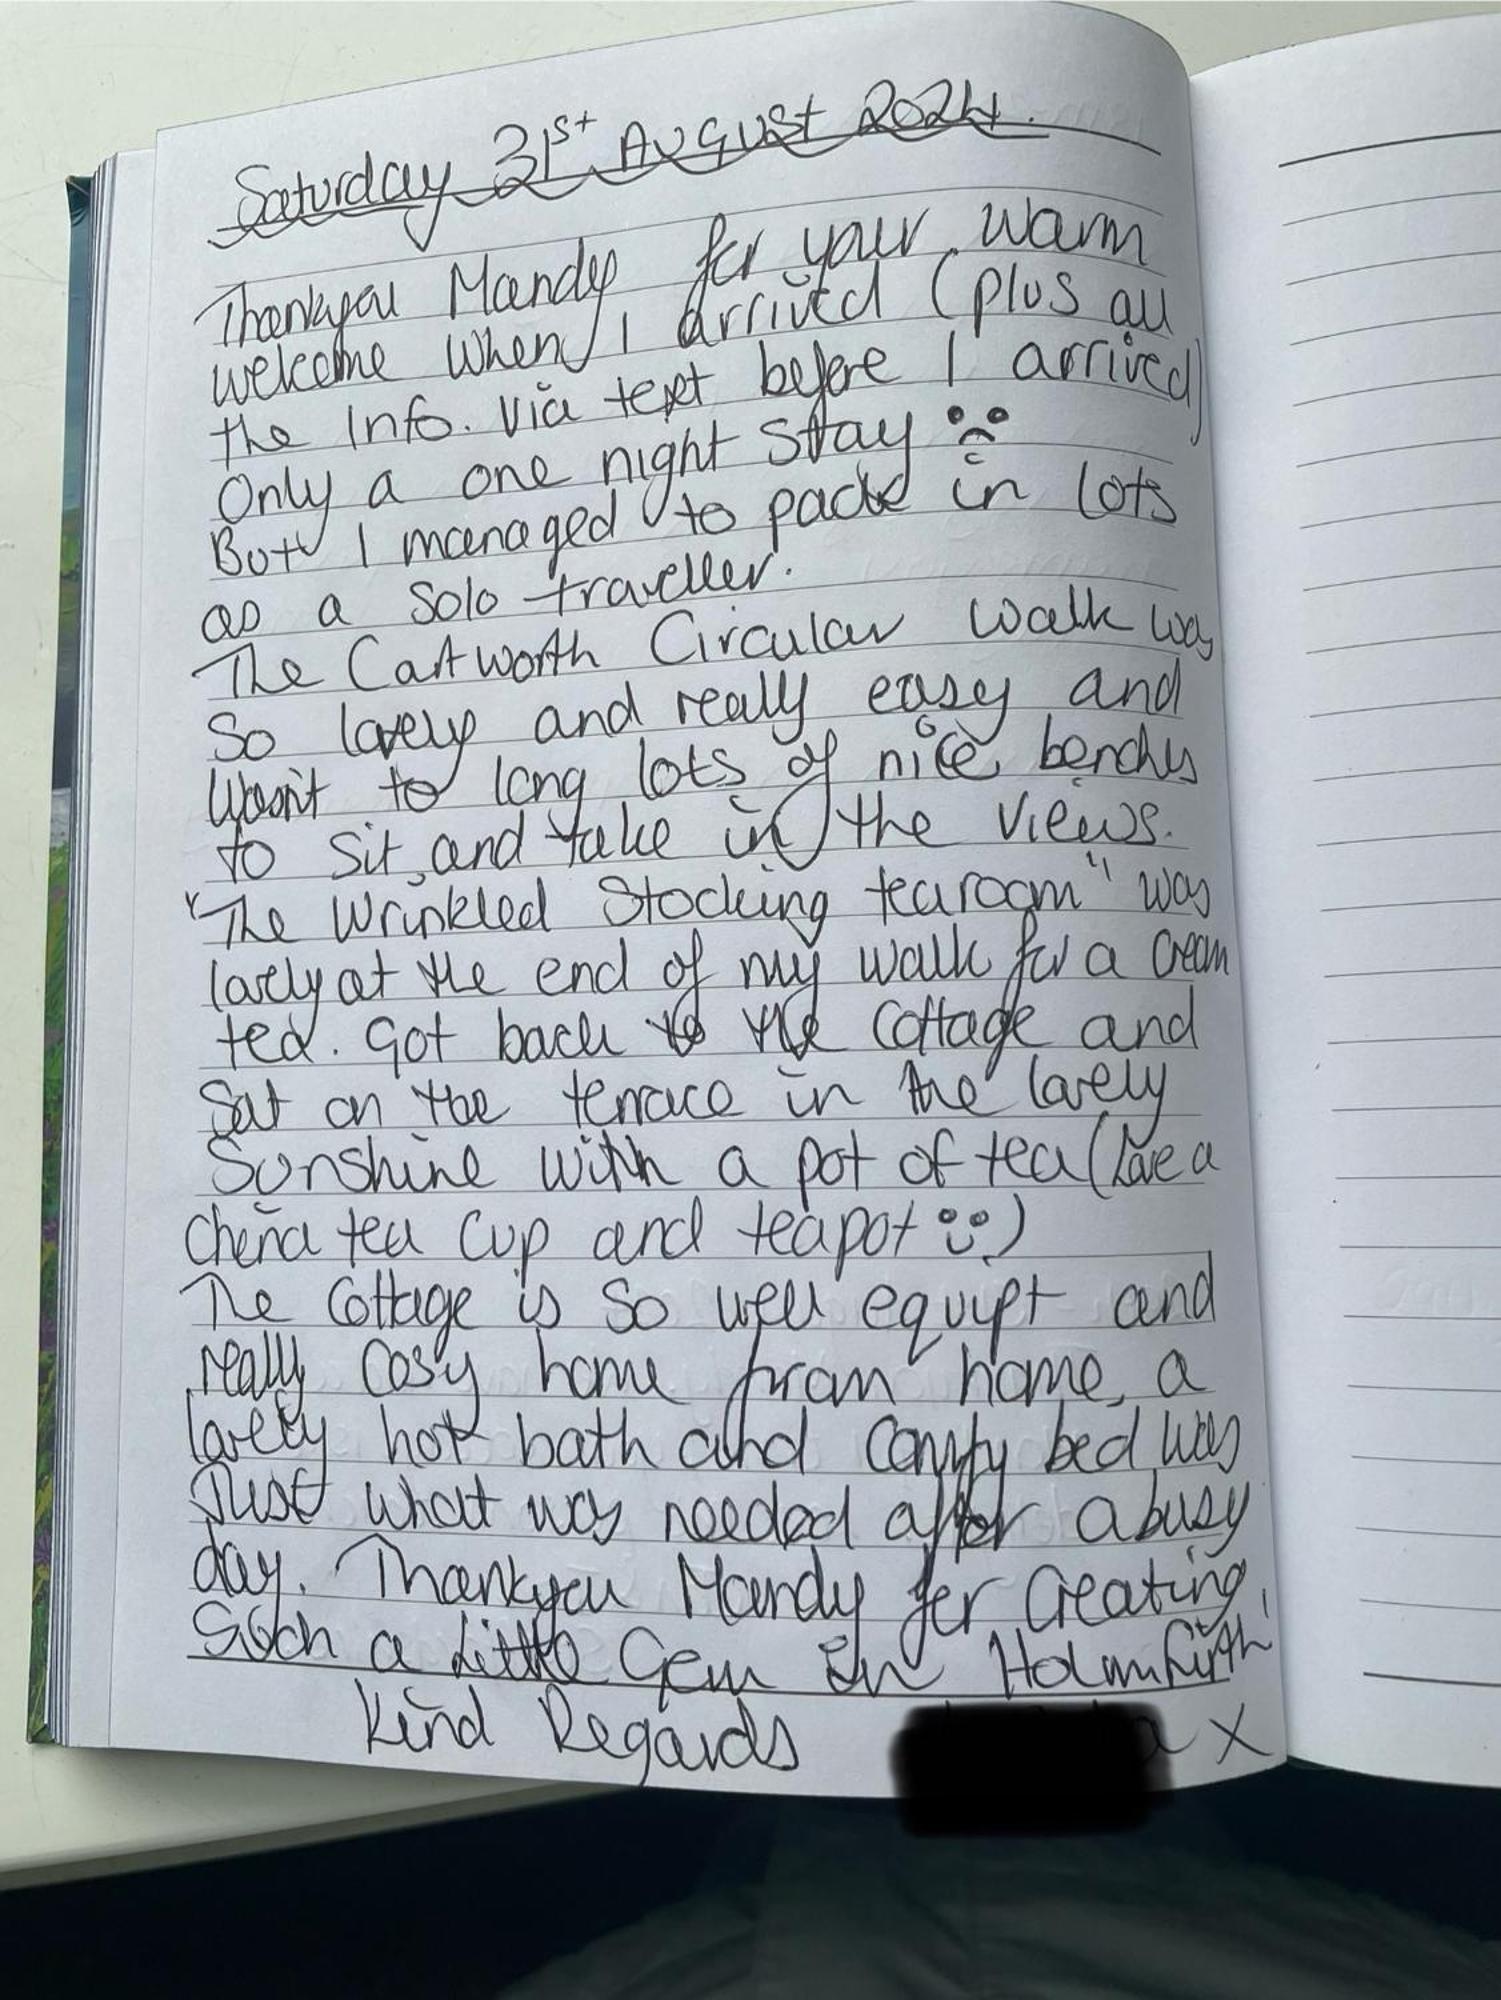 Saturday 31st August 2024.
Thankyou Mandy for your warm
welcome when I arrived (plus all
the Info. via text before I arrived)
Only a one night stay ☹
But I managed to pack in lots
as a solo traveller.
The Cartworth Circular walk was
So lovely and really easy and
Wasn't to long lots of nice benches
to sit, and take in the views.
"The Wrinkled Stocking tearoom" was
lovely at the end of my walk for a cream
tea. Got back to the cottage and
Sat on the terrace in the lovely
Sunshine with a pot of tea (Love a
chena tea cup and teapot ☺)
The Cottage is so well equipt and
really cosy home from home, a
lovely hot bath and comfy bed was
Just what was needed after a busy
day. Thankyou Mandy for Creating
Such a Little Gem in Holmfirth!
Kind Regards
x